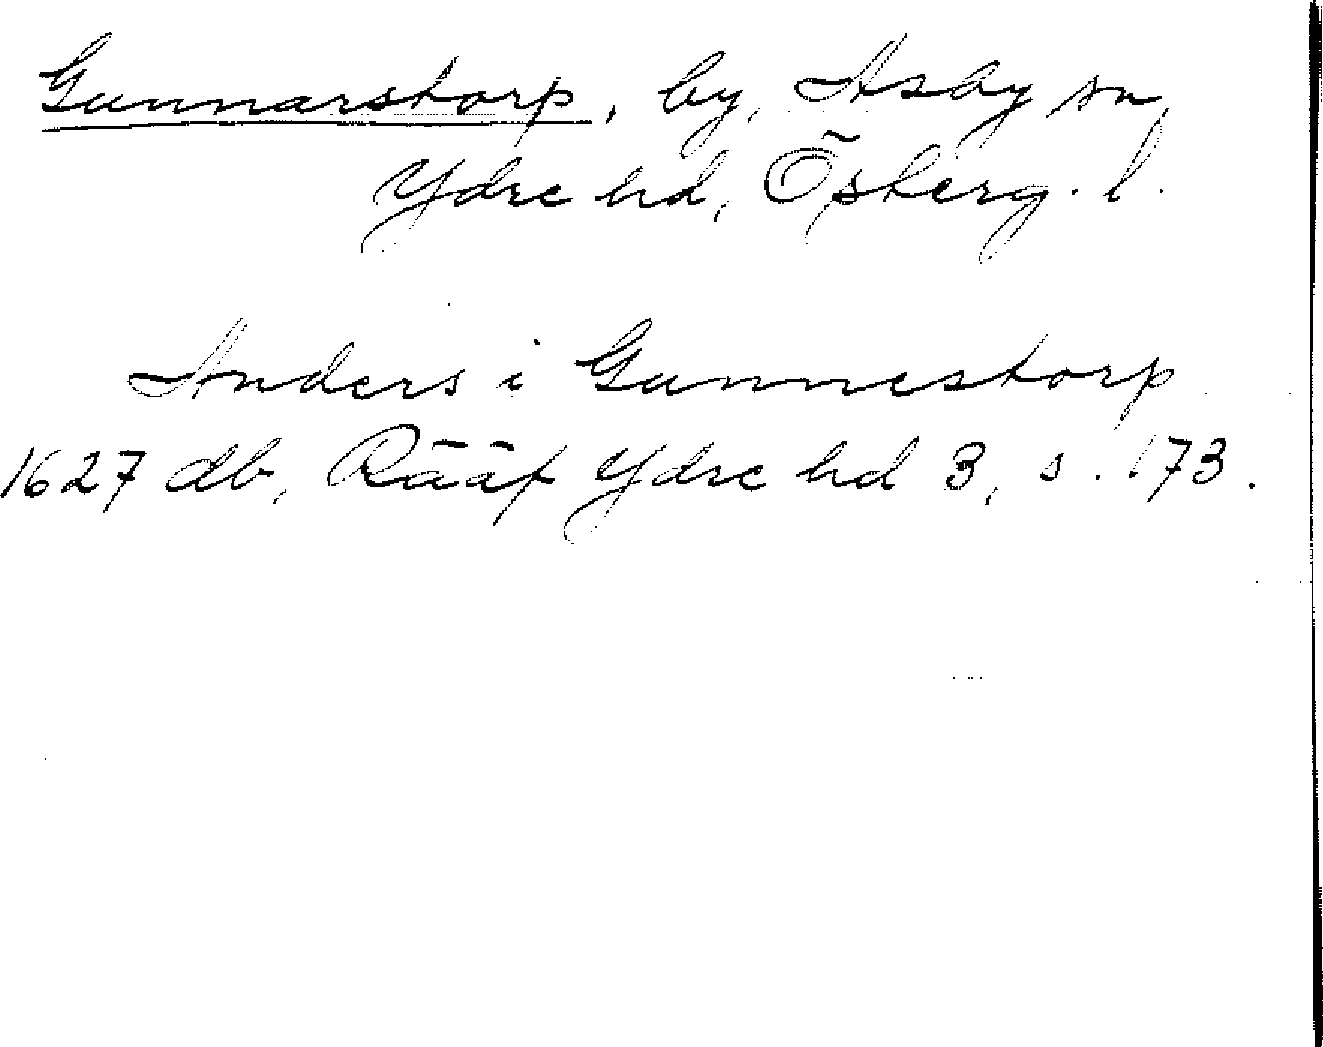 Gunnarstorp, by, Asby sn,
Ydre hd, Österg. l.
Anders i Gunnestorp
1627 db, Rääf Ydre hd 3, s. 173.